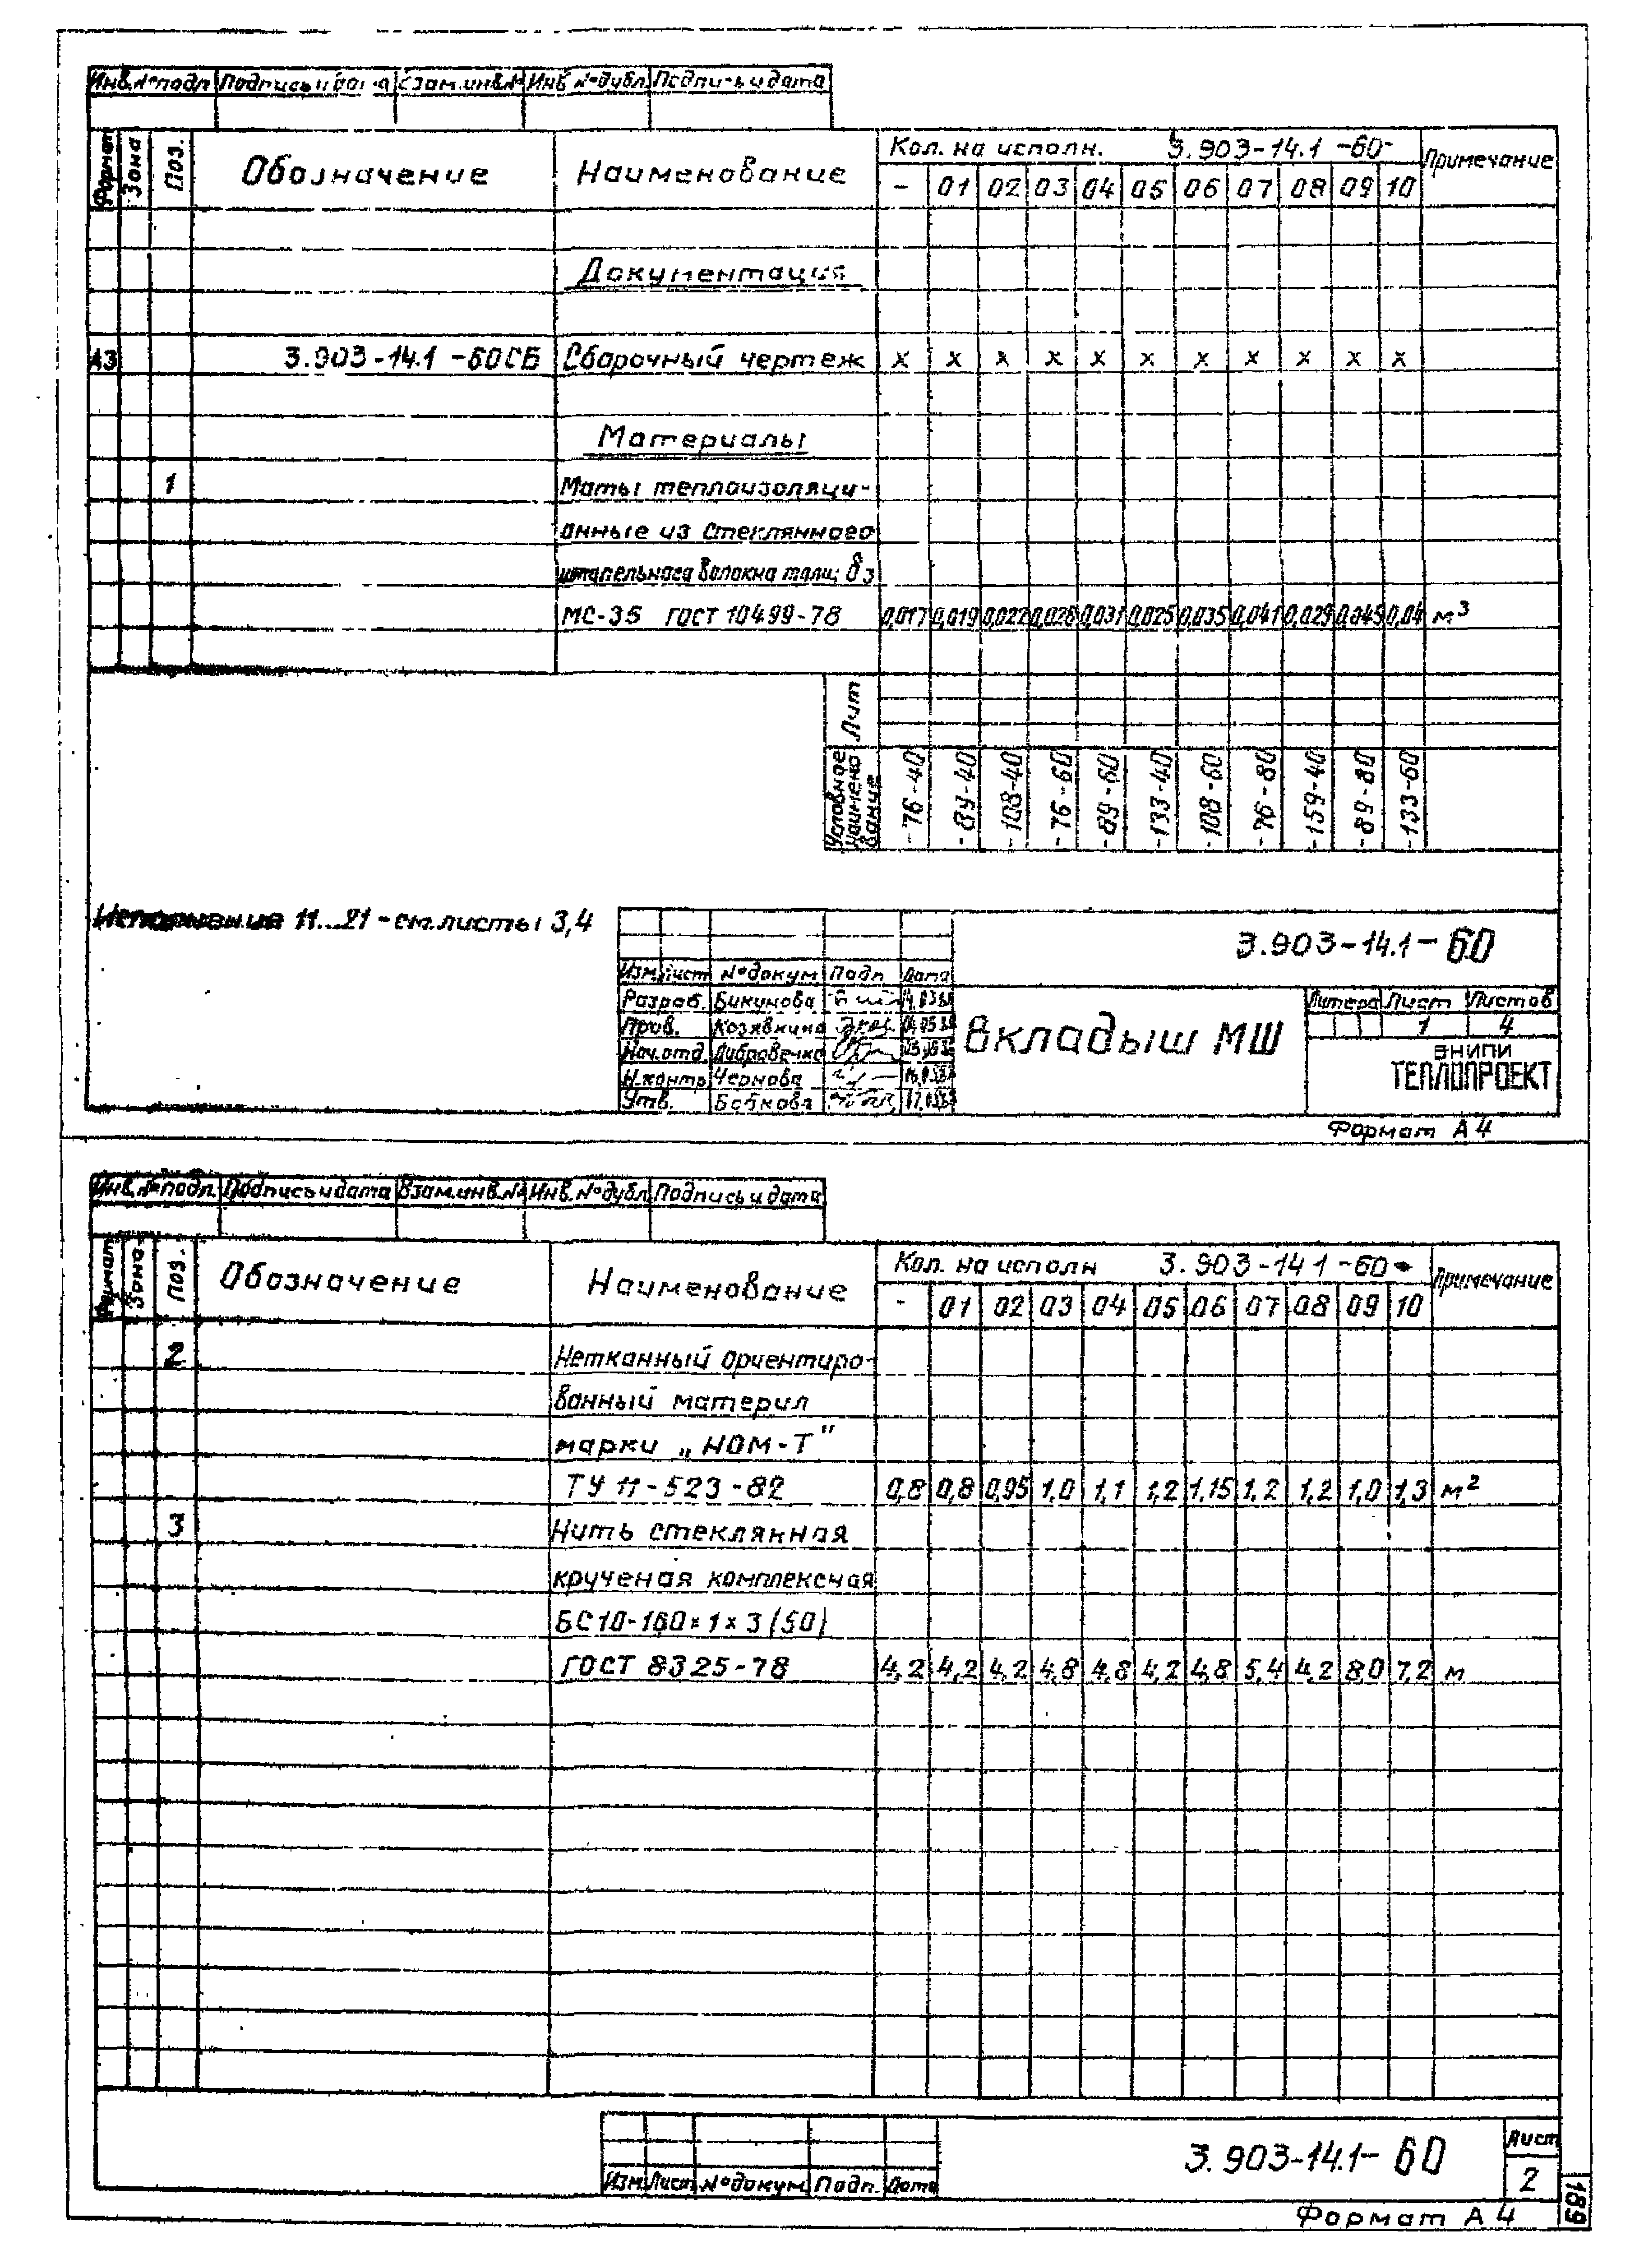 Инв.№подл Подпись и дата Взам.инв.№ Инв №дубл Подпись и дата
Формат Зона Поз. Обозначение Наименование Кол. на исполн. 3.903-14.1 -60- Примечание
- 01 02 03 04 05 06 07 08 09 10
Документация
А3 3.903-14.1 -60СБ Сборочный чертеж х х х х х х х х х х х
Материалы
1 Маты теплоизоляци-
онные из стеклянного
штапельного волокна толщ; δз
МС-35 ГОСТ 10499-78 0,017 0,019 0,022 0,028 0,031 0,025 0,035 0,041 0,029 0,045 0,04 м³
Лит
Условное наимено вание -76-40 -89-40 -108-40 -76-60 -89-60 -133-40 -108-60 -76-80 -159-40 -89-80 -133-60
Исполнение 11...21 - см.листы 3,4
3.903-14.1- 60
Изм Лист №докум Подп Дата
Разраб. Бикунова
Пров. Козявкина
Нач.отд.
Н.контр Чернова
Утв.
Вкладыш МШ
Литера Лист Листов
1 4
ВНИПИ
ТЕПЛОПРОЕКТ
Формат А4
Инв.№подл. Подпись и дата Взам.инв.№ Инв.№дубл Подпись и дата
Формат Зона Поз. Обозначение Наименование Кол. на исполн 3.903-14 1 -60- Примечание
- 01 02 03 04 05 06 07 08 09 10
2 Нетканный ориентиро-
ванный материл
марки „НОМ-Т”
ТУ 11-523-82 0,8 0,8 0,95 1,0 1,1 1,2 1,15 1,2 1,2 1,0 1,3 м²
3 Нить стеклянная
крученая комплексная
БС10-160×1×3(50)
ГОСТ 8325-78 4,2 4,2 4,2 4,8 4,8 4,2 4,8 5,4 4,2 8,0 7,2 м
3.903-14.1- 60
Лист
2
Изм. Лист №докум Подп. Дата
Формат А4
189